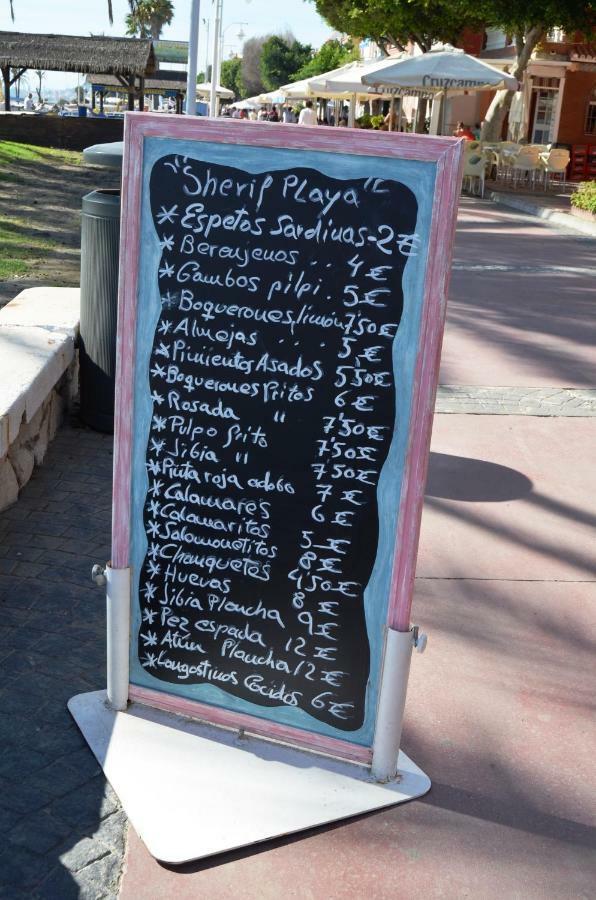 Cruzcampo
"Sherif Playa"
* Espetos Sardinas - 2 €
* Berenjenas .. 4 €
* Gambas pilpi . 5 €
* Boquerones limón 7,50 €
* Almejas .... 5, €
* Pimientos Asados 5,50 €
* Boquerones Fritos 6 €
* Rosada " 7,50 €
* Pulpo frito 7,50 €
* Jibia " 7,50 €
* Pinta roja adobo 7 €
* Calamares 6 €
* Calamaritos 5 €
* Salmonetitos 8 €
* Chanquetes 4,50 €
* Huevas 8 €
* Jibia Plancha 9 €
* Pez espada 12 €
* Atún Plancha 12 €
* Langostinos Cocidos 6 €